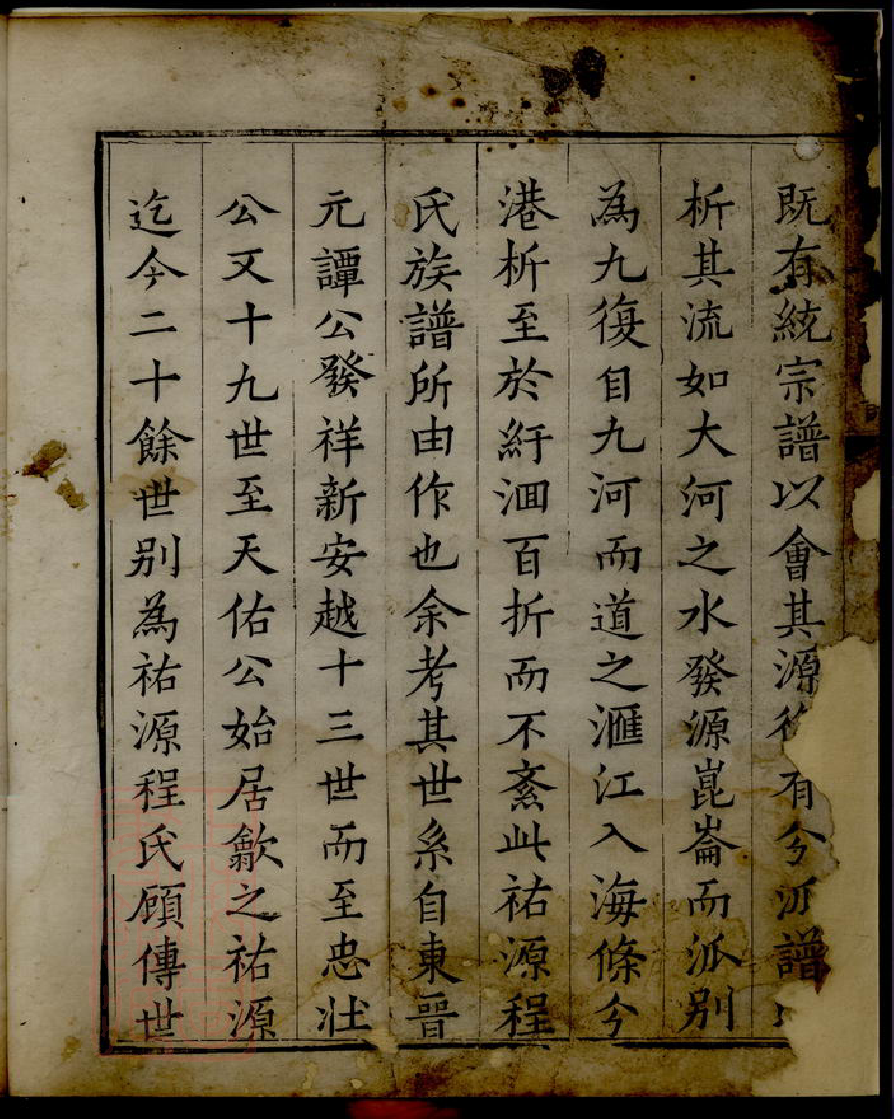 既有統宗譜以會其源有分派譜
析其流如大河之水發源崑崙而派別
為九復自九河而道之滙江入海條分
港析至於紆洄百折而不紊此祐源程
氏族譜所由作也余考其世系自東晉
元譚公發祥新安越十三世而至忠壯
公又十九世至天佑公始居歙之祐源
迄今二十餘世别為祐源程氏顧傳世